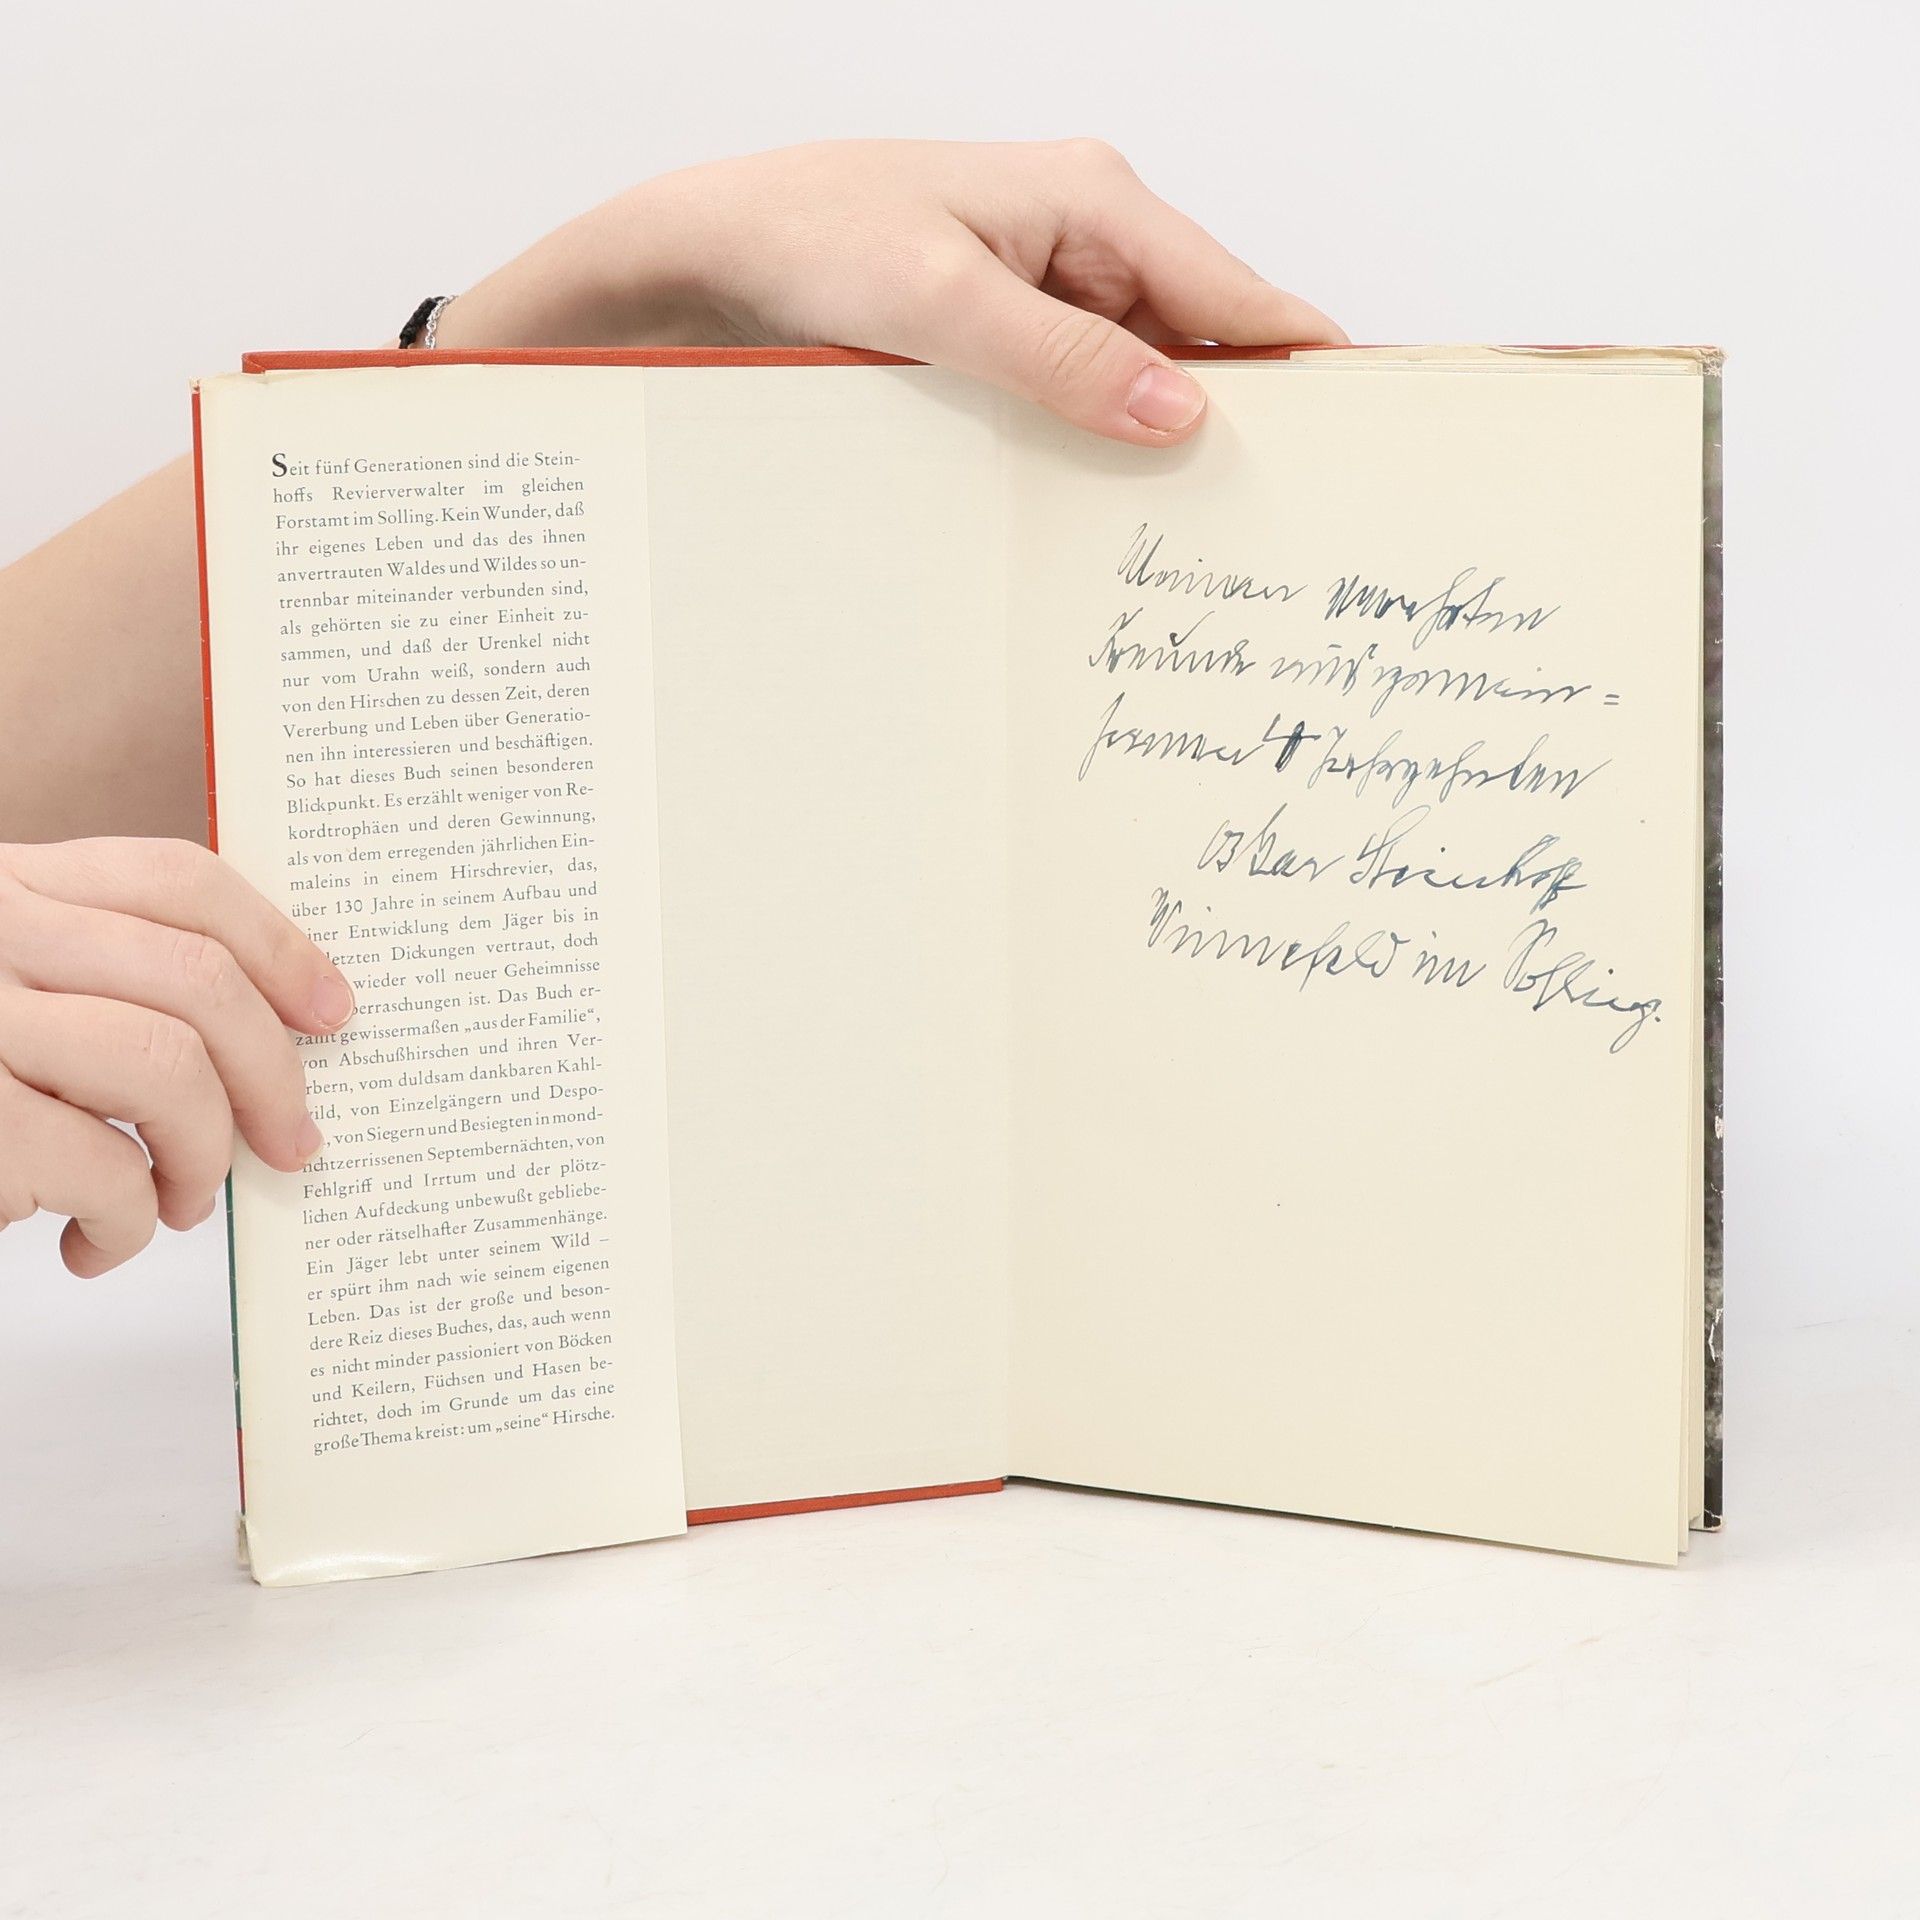 Seit fünf Generationen sind die Stein-
hoffs Revierverwalter im gleichen
Forstamt im Solling. Kein Wunder, daß
ihr eigenes Leben und das des ihnen
anvertrauten Waldes und Wildes so un-
trennbar miteinander verbunden sind,
als gehörten sie zu einer Einheit zu-
sammen, und daß der Urenkel nicht
nur vom Urahn weiß, sondern auch
von den Hirschen zu dessen Zeit, deren
Vererbung und Leben über Generatio-
nen ihn interessieren und beschäftigen.
So hat dieses Buch seinen besonderen
Blickpunkt. Es erzählt weniger von Re-
kordtrophäen und deren Gewinnung,
als von dem erregenden jährlichen Ein-
maleins in einem Hirschrevier, das,
über 130 Jahre in seinem Aufbau und
einer Entwicklung dem Jäger bis in
letzten Dickungen vertraut, doch
wieder voll neuer Geheimnisse
berraschungen ist. Das Buch er-
zählt gewissermaßen „aus der Familie“,
von Abschußhirschen und ihren Ver-
rbern, vom duldsam dankbaren Kahl-
wild, von Einzelgängern und Despo-
, von Siegern und Besiegten in mond-
ichtzerrissenen Septembernächten, von
Fehlgriff und Irrtum und der plötz-
lichen Aufdeckung unbewußt gebliebe-
ner oder rätselhafter Zusammenhänge.
Ein Jäger lebt unter seinem Wild –
er spürt ihm nach wie seinem eigenen
Leben. Das ist der große und beson-
dere Reiz dieses Buches, das, auch wenn
es nicht minder passioniert von Böcken
und Keilern, Füchsen und Hasen be-
richtet, doch im Grunde um das eine
große Thema kreist: um „seine“ Hirsche.
Meinem verehrten
Freunde aus gemein=
samen 4 Jahrzehnten
Oskar Steinhoff
Winnefeld im Solling.